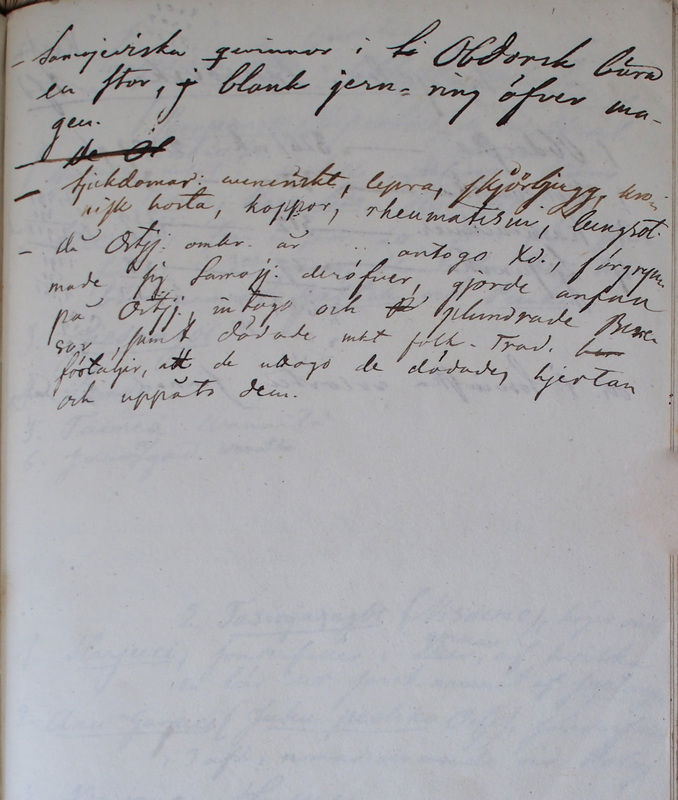 – Samojediska qwinnor i Obdorsk bära
en stor, blank jern-ring öfver ma-
gen.
– De Ob
– Sjukdomar: veneriskt, lepra, skjörbjugg, kro-
nisk hosta, koppor, rheumatism, lungsot.
– Då Ostj. omkr. år .. antogo Xd., förgrym-
made sig Samoj. deröfver, gjorde anfall
på Ostj., intogo och plundrade Bere-
sov, samt dödade mkt folk. Trad.
förtäljer, att de uttogo de dödades hjertan
och uppåto dem.